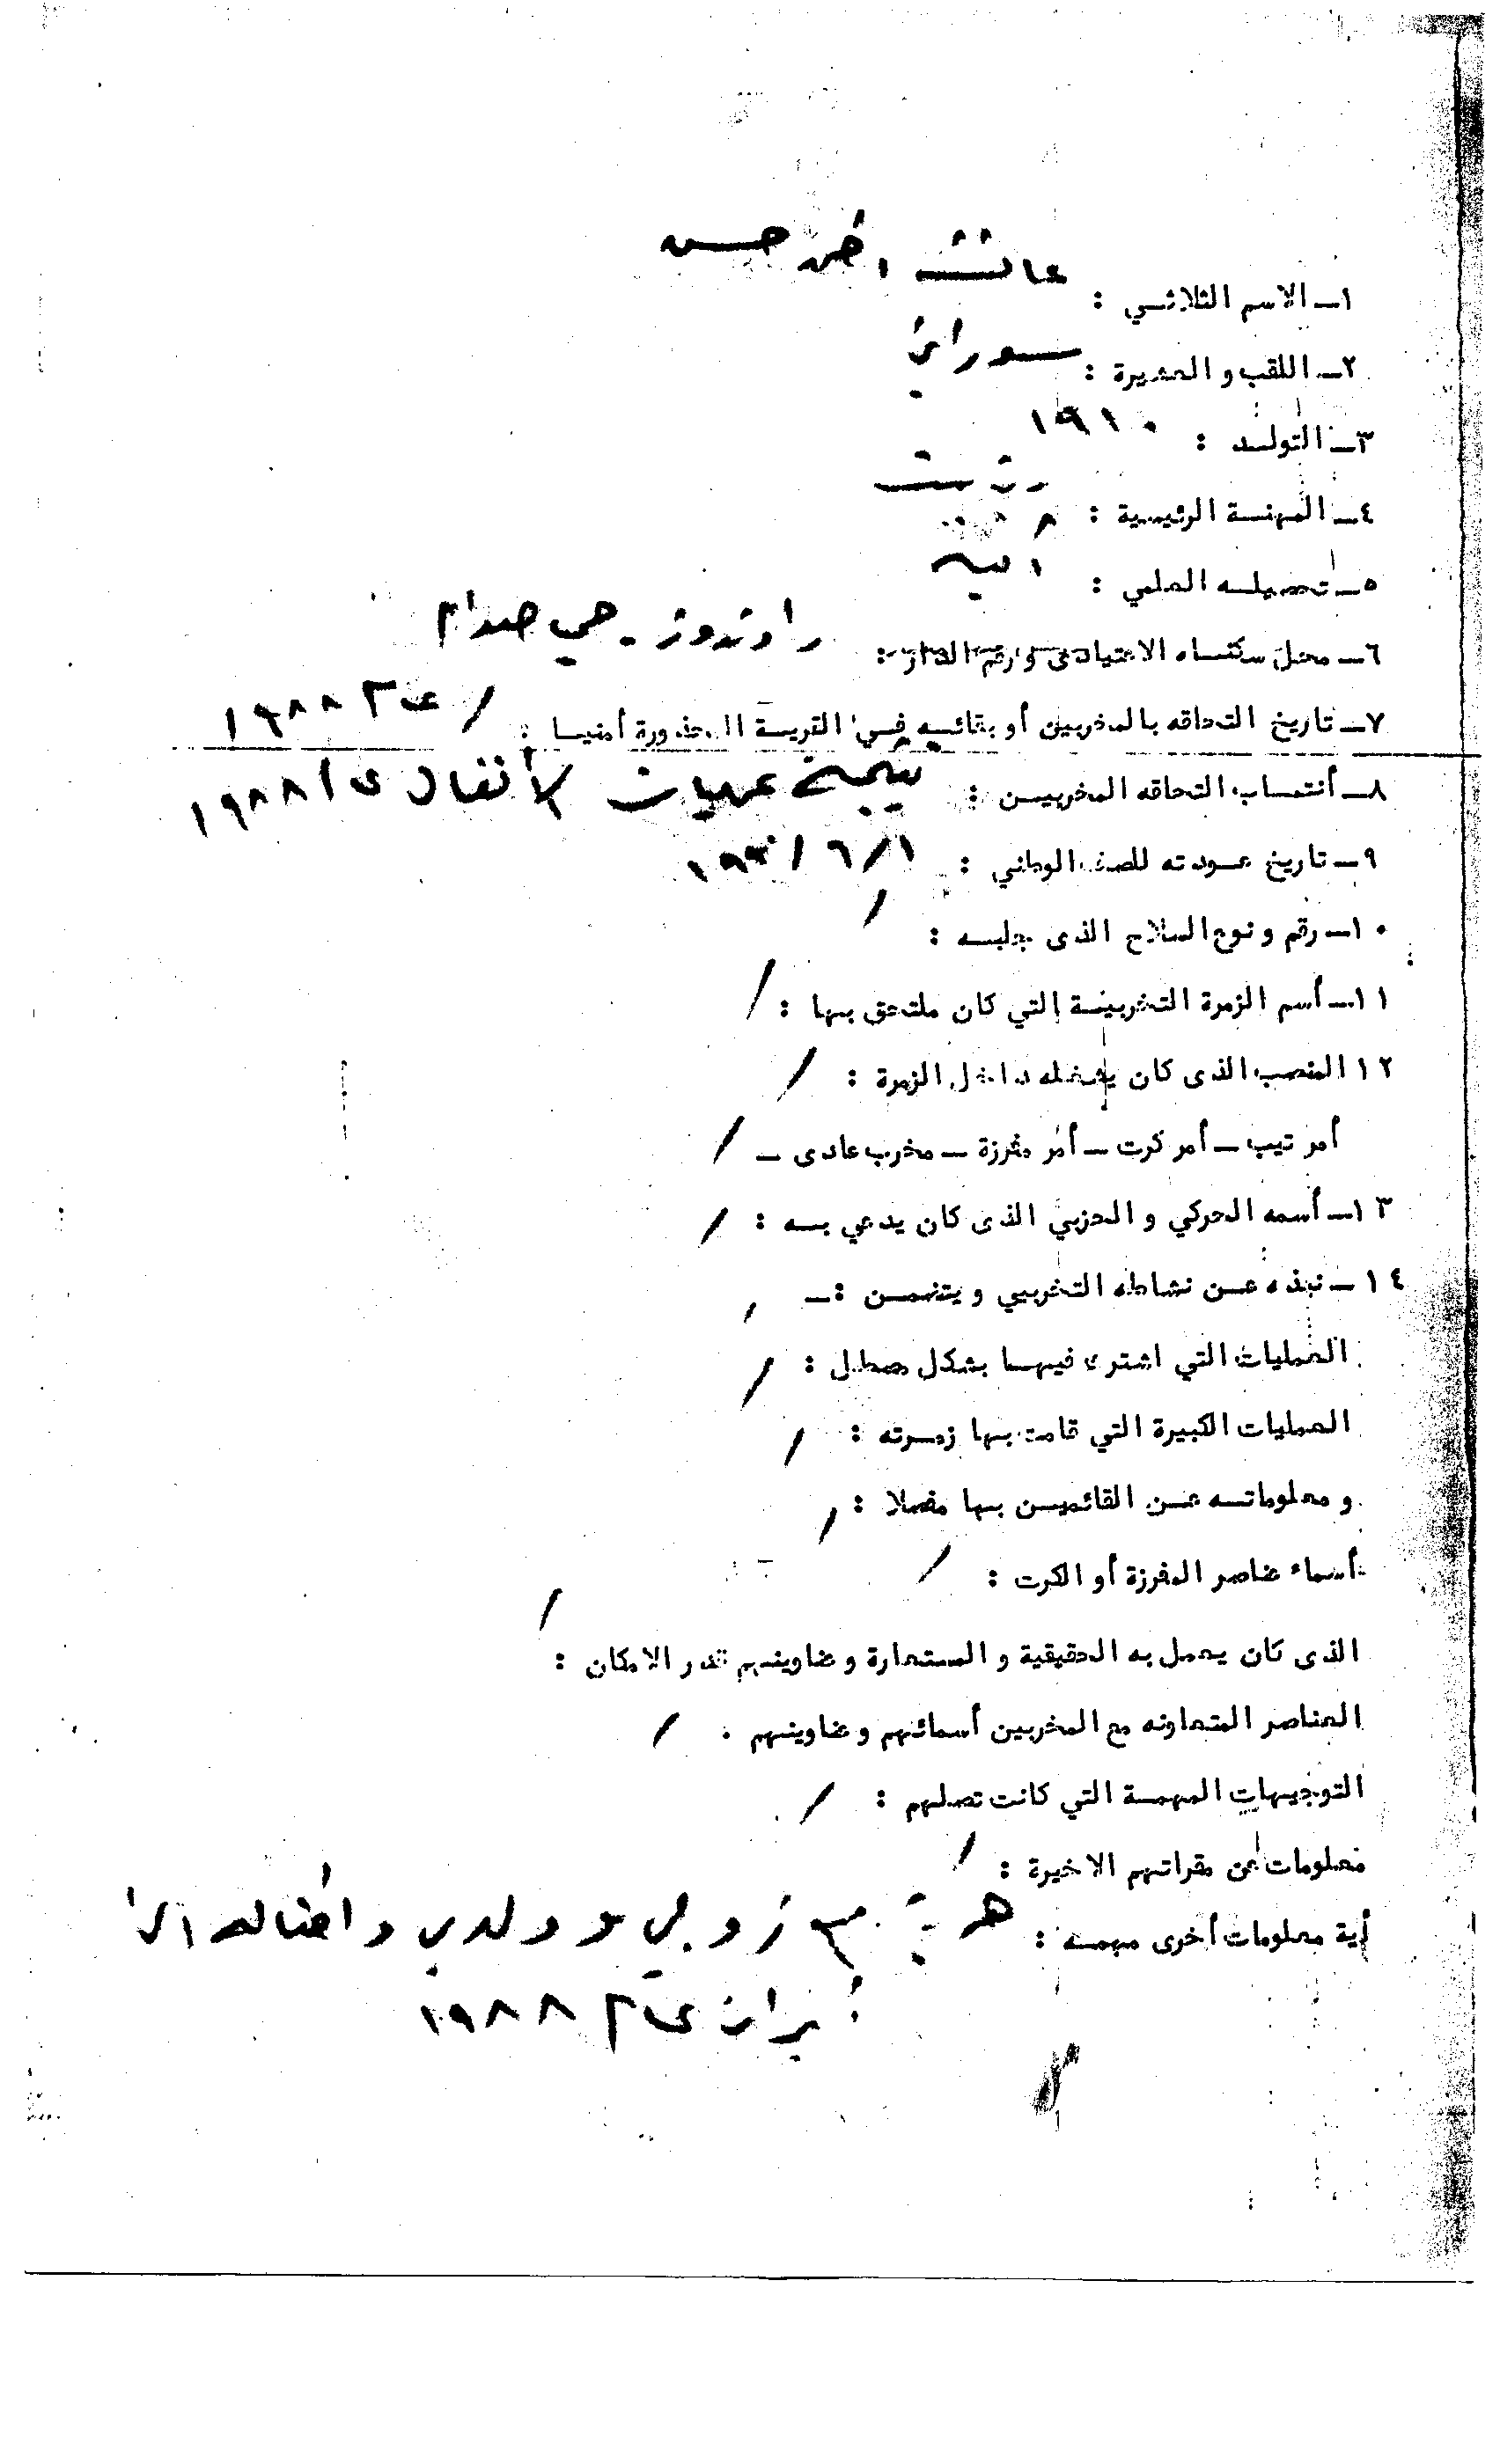 ١ــ الاسم الثلاثـي : عائشـة احمد حسـن
٢ــ اللقب و العشيرة : سوراني
٣ــ التولـد : ١٩١٠
٤ــ المهنـة الرئيسية : ربة بيت
٥ــ تحصيلـه العلمي : امية
٦ــ محل سكنـاه الاعتيادى و رقم الدار : راوندوز ـ حي صدام
٧ــ تاريخ التحاقه بالمخربين أو بقائـه فـي القريـة المحذورة أمنيـا : / ١٩٨٨
٨ــ أنتسـاب التحاقه المخربيـن : نتيجة عمليات الأنفال ١٩٨٨
٩ــ تاريخ عـودته للصف الوطني : ١/٦/
١٠ــ رقم و نوع السلاح الذى جلبـه : /
١١ــ أسم الزمرة التخريبيـة التي كان ملتحق بها : /
١٢ المنصب الذى كان يشغله داخل الزمرة : /
أمر تيب ــ أمر كرت ــ أمر مفرزة ــ مخرب عادى ــ /
١٣ــ أسمه الحركي و الحزبي الذى كان يدعي بـه : /
١٤ــ نبذه عـن نشاطه التخريبي و يتضمـن :ــ /
العمليات التي اشترك فيهـا بشكل مفصل : /
العمليات الكبيرة التي قامت بها زمـرته : /
و معلوماتـه عـن القائميـن بها مفصلا : /
أسماء عناصر المفرزة أو الكرت : /
الذى كان يعمل به الحقيقية و المستعارة و عناوينهم قدر الامكان : /
العناصر المتعاونه مع المخربين أسمائهم و عناوينهم . /
التوجيهات المهمـة التي كانت تصلهم : /
معلومات عن مقراتهم الاخيرة : /
أية معلومات أخرى مهمـه : هربت مع زوجي و ولدي و اطفاله الى
ايران ١٩٨٨